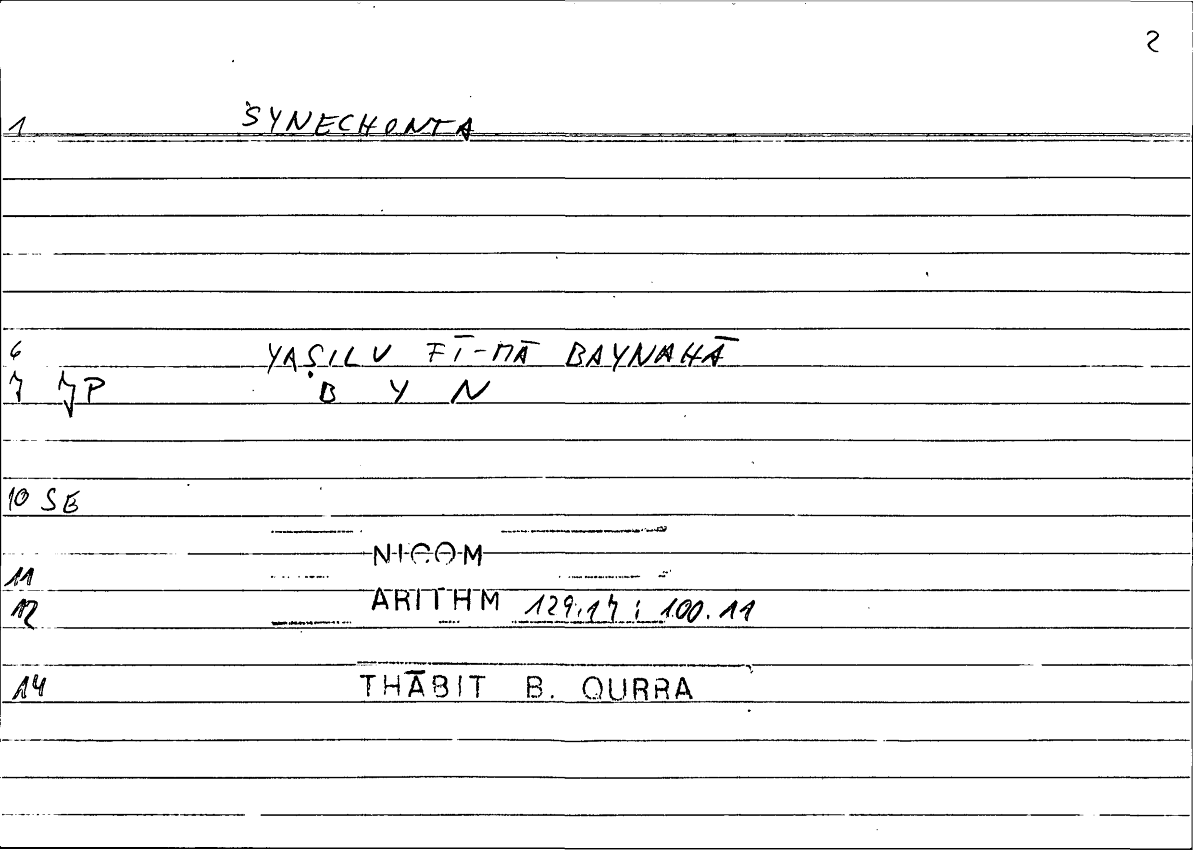 2
1 SYNECHONTA
6 YAṢILU FĪ-MĀ BAYNAHĀ
7 7P B Y N
10 SE
11 NICOM
12 ARITHM 129.17; 100.11
14 THĀBIT B. QURRA